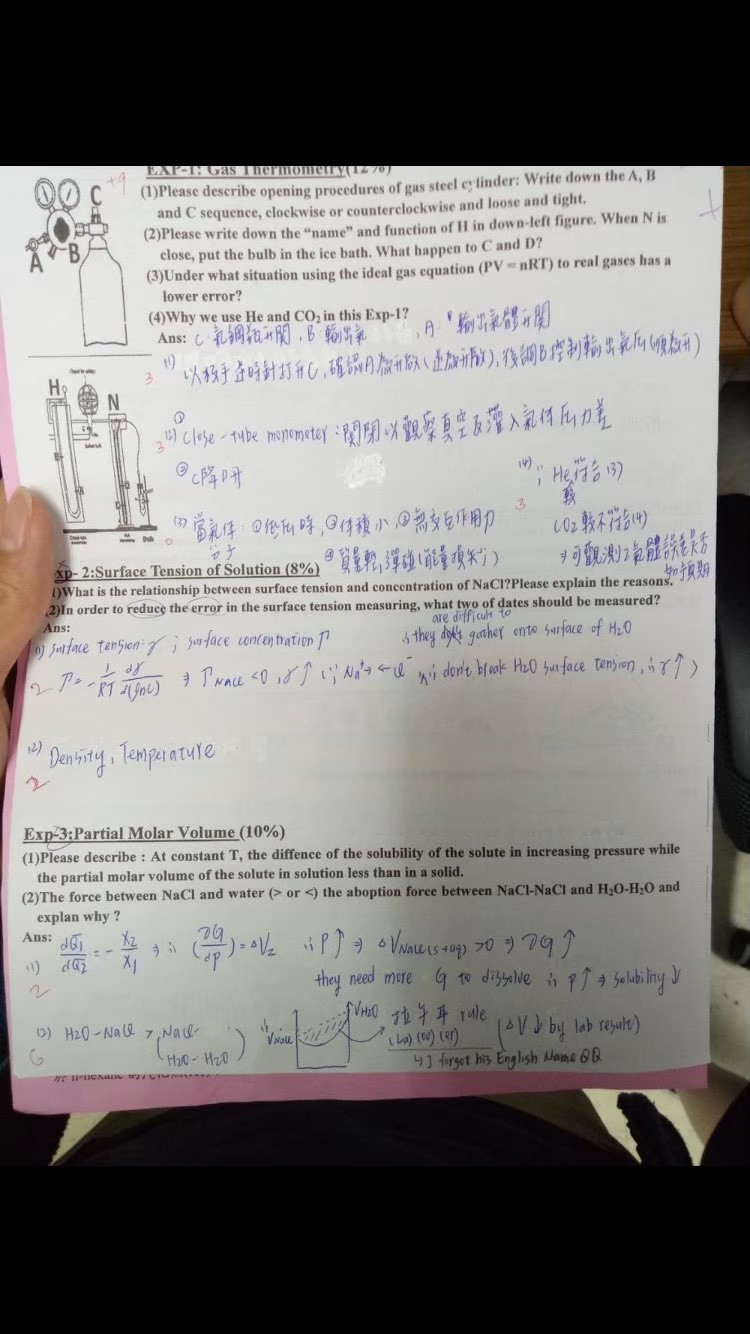 EXP-1: Gas Thermometry(12%)
+9
(1)Please describe opening procedures of gas steel cylinder: Write down the A, B
and C sequence, clockwise or counterclockwise and loose and tight.
(2)Please write down the “name” and function of H in down-left figure. When N is
close, put the bulb in the ice bath. What happen to C and D?
(3)Under what situation using the ideal gas equation (PV = nRT) to real gases has a
lower error?
(4)Why we use He and CO2 in this Exp-1?
C
A B
Ans: C: 氣鋼瓶開關, B: 輸出氣, A: 輸出氣體開關
(1) 以板手逆時針打開C, 確認A為開啟(逆為開啟), 後調B控制輸出氣压(順為開)
3
H N
① (2) Close-tube monometer: 關閉以觀察真空反灌入氣体压力差
3
② C降D升
(4) ∵ He符合(3)
3
CO2較不符合(4)
⇒可觀測2氣體誤差是否如預期
(3) 當氣体分子 ①低压時, ②体積小, ③無交互作用力
0
④質量輕, 彈碰(能量損失↓)
Exp- 2:Surface Tension of Solution (8%)
(1)What is the relationship between surface tension and concentration of NaCl?Please explain the reasons.
(2)In order to reduce the error in the surface tension measuring, what two of dates should be measured?
Ans:
(1) surface tension: γ ; surface concentration Γ
∴ they are difficute to gather onto surface of H2O
2 Γ = - 1/RT dγ/d(lnC) ⇒ Γ NaCl <0 , γ↑ (∵ Na+→ ←Cl- ∴ don't break H2O surface tension, ∴ γ↑)
(2) Density, Temperature
2
Exp-3:Partial Molar Volume (10%)
(1)Please describe : At constant T, the diffence of the solubility of the solute in increasing pressure while
the partial molar volume of the solute in solution less than in a solid.
(2)The force between NaCl and water (> or <) the aboption force between NaCl-NaCl and H2O-H2O and
explan why ?
Ans:
(1) dQ1/dQ2 = - X2/X1 ⇒ ∴ (∂G/∂P) = ΔV2 ∴ P↑ ⇒ ΔVNaCl(s→aq) >0 ⇒ ∂G↑
2
they need more G to dissolve ∴ P↑ ⇒ solubility ↓
(2) H2O-NaCl > (NaCl- H2O-H2O) ∴ VNaCl VH2O 拉午耳 rule (ΔV↓ by lab result)
6
(La) (ou) (er)
↳ I forgot his English Name QQ